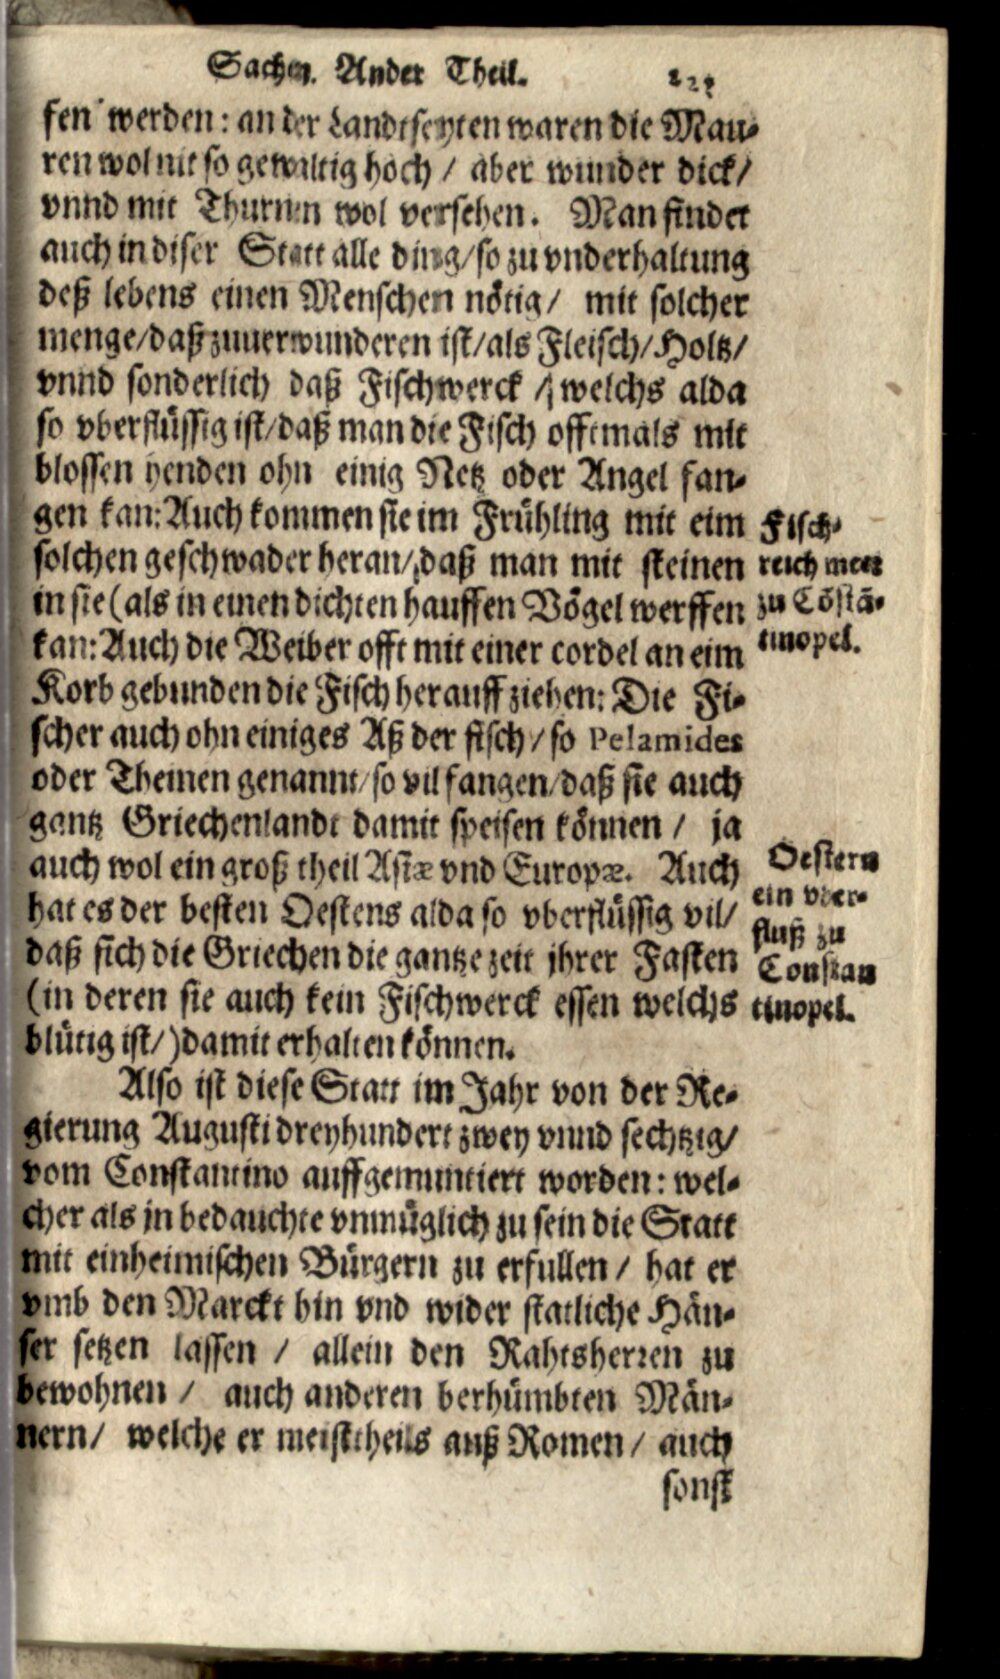 Sachen. Ander Theil.
fen werden: an der Landtseyten waren die Mau-
ren wol nit so gewaltig hoch / aber wunder dick/
vnnd mit Thurnen wol versehen. Man findet
auch in diser Statt alle ding/so zu vnderhaltung
deß lebens einen Menschen nötig/ mit solcher
menge/daß zuuerwunderen ist/als Fleisch/Holtz/
vnnd sonderlich daß Fischwerck / welchs alda
so vberflüssig ist/daß man die Fisch offtmals mit
blossen henden ohn einig Netz oder Angel fan-
gen kan: Auch kommen sie im Frühling mit eim
solchen geschwader heran/daß man mit steinen
in sie (als in einen dichten hauffen Vögel werffen
kan: Auch die Weiber offt mit einer cordel an eim
Korb gebunden die Fisch herauff ziehen: Die Fi-
scher auch ohn einiges Aß der fisch / so Pelamides
oder Themen genannt/so vil fangen/daß sie auch
gantz Griechenlandt damit speisen können / ja
auch wol ein groß theil Asiæ vnd Europæ. Auch
hat es der besten Oestens alda so vberflüssig vil/
daß sich die Griechen die gantze zeit jhrer Fasten
(in deren sie auch kein Fischwerck essen welchs
blütig ist/)damit erhalten können.
Also ist diese Statt im Jahr von der Re-
gierung Augusti dreyhundert zwey vnnd sechtzig/
vom Constantino auffgemuntiert worden: wel-
cher als jn bedauchte vnmüglich zu sein die Statt
mit einheimischen Bürgern zu erfullen / hat er
vmb den Marckt hin vnd wider statliche Häu-
ser setzen lassen / allein den Rahtsherren zu
bewohnen / auch anderen berhümbten Män-
nern/ welche er meistheils auß Romen / auch
sonst
Fisch-
reich meer
zu Cōstā-
tinopel.
Oestern
ein vber-
fluß zu
Constan
tinopel.